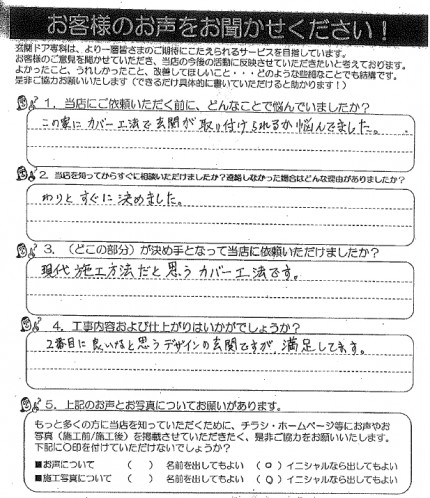 お客様のお声をお聞かせください!
玄関ドア専科は、より一層皆さまのご期待にこたえられるサービスを目指しています。
お客様のご意見を聞かせていただき、当店の今後の活動に反映させていただきたいと考えております。
よかったこと、うれしかったこと、改善してほしいこと・・・どのような些細なことでも結構です。
是非ご協力お願いいたします(できるだけ具体的に書いていただけると助かります!)
1．当店にご依頼いただく前に、どんなことで悩んでいましたか?
この家にカバー工法で玄関が取り付けられるか悩んでました。
2．当店を知ってからすぐに相談いただけましたか?連絡しなかった場合はどんな理由がありましたか?
わりとすぐに決めました。
3．（どこの部分）が決め手となって当店に依頼いただけましたか?
現代施工方法だと思うカバー工法です。
4．工事内容および仕上がりはいかがでしょうか?
2番目に良いなと思うデザインの玄関ですが、満足してます。
5．上記のお声とお写真についてお願いがあります。
もっと多くの方に当店を知っていただくために、チラシ・ホームページ等にお声やお
写真（施工前/施工後）を掲載させていただきたく、是非ご協力をお願いいたします。
下記に〇印を付けていただけないでしょうか?
■お声について （ ） 名前を出してもよい （○）イニシャルなら出してもよい
■施工写真について （ ） 名前を出してもよい （○）イニシャルなら出してもよい